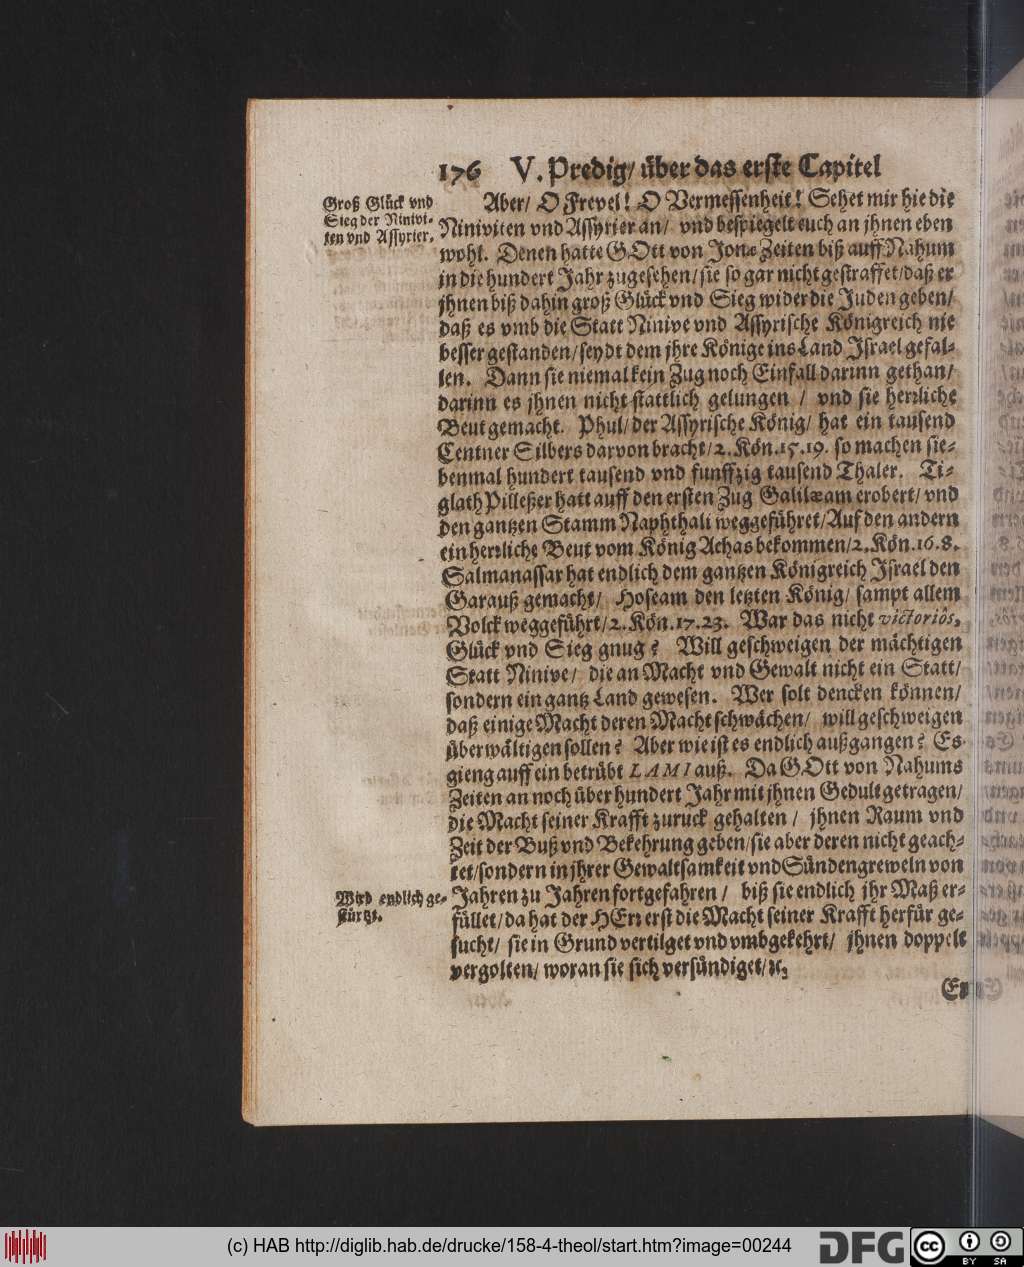 176 V. Predig/ über das erste Capitel
Groß Glück vnd
Sieg der Ninivi-
ten vnd Assyrier.
Aber/ O Frevel! O Vermessenheit! Sehet mir hie die
Niniviten vnd Assyrier an/ vnd bespiegelt euch an jhnen eben
wohl. Denen hatte GOtt von Jonæ Zeiten biß auff Nahum
in die hundert Jahr zugesehen/ sie so gar nicht gestraffet/ daß er
jhnen biß dahin groß Glück vnd Sieg wider die Juden geben/
daß es vmb die Statt Ninive vnd Assyrische Königreich nie
besser gestanden/ seydt dem jhre Könige ins Land Israel gefal-
len. Dann sie niemal kein Zug noch Einfall darinn gethan/
darinn es jhnen nicht stattlich gelungen / vnd sie herrliche
Beut gemacht. Phul/ der Assyrische König/ hat ein tausend
Centner Silbers darvon bracht/ 2. Kön. 15. 19. so machen sie-
benmal hundert tausend vnd funffzig tausend Thaler. Ti-
glath Pilleßer hatt auff den ersten Zug Galilæam erobert/ vnd
den gantzen Stamm Naphthali weggeführet/ Auf den andern
ein herrliche Beut vom König Achas bekommen/ 2. Kön. 16. 8.
Salmanassar hat endlich dem gantzen Königreich Israel den
Garauß gemacht/ Hoseam den letzten König/ sampt allem
Volck weggeführt/ 2. Kön. 17. 23. War das nicht victoriôs,
Glück vnd Sieg gnug? Will geschweigen der mächtigen
Statt Ninive/ die an Macht vnd Gewalt nicht ein Statt/
sondern ein gantz Land gewesen. Wer solt dencken können/
daß einige Macht deren Macht schwächen/ will geschweigen
überwältigen sollen? Aber wie ist es endlich außgangen? Es
gieng auff ein betrübt LAMI auß. Da GOtt von Nahums
Zeiten an noch über hundert Jahr mit jhnen Gedult getragen/
die Macht seiner Krafft zuruck gehalten / jhnen Raum vnd
Zeit der Buß vnd Bekehrung geben/ sie aber deren nicht geach-
tet/ sondern in jhrer Gewaltsamkeit vnd Sündengreweln von
Wird endlich ge-
stürtzt.
Jahren zu Jahren fortgefahren / biß sie endlich jhr Maß er-
füllet/ da hat der HErr erst die Macht seiner Krafft herfür ge-
sucht/ sie in Grund vertilget vnd vmbgekehrt/ jhnen doppelt
vergolten/ woran sie sich versündiget/ ꝛc.
(c) HAB http://diglib.hab.de/drucke/158-4-theol/start.htm?image=00244
DFG
cc BY SA